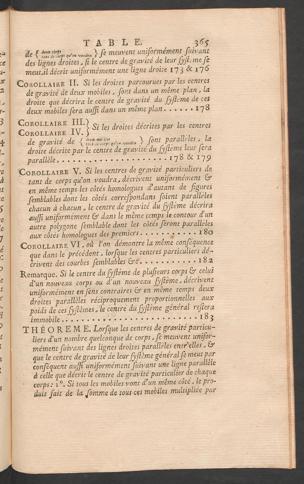 TABLE. 365
de { deux corps / tant de corps qu'on voudra } se meuvent uniformément suivant
des lignes droites, si le centre de gravité de leur systême se
meut, il décrit uniformément une ligne droite 173 & 176
COROLLAIRE II. Si les droites parcourues par les centres
de gravité de deux mobiles, sont dans un même plan, la
droite que décrira le centre de gravité du systême de ces
deux mobiles sera aussi dans un même plan. . . . . . . 178
COROLLAIRE III.
COROLLAIRE IV. } Si les droites décrites par les centres
de gravité de { sont paralleles, la
droite décrite par le centre de gravité du systême leur sera
parallele. . . . . . . . . . . . . . . . . . 178 & 179
COROLLAIRE V. Si les centres de gravité particuliers de
tant de corps qu'on voudra, décrivent uniformément &
en même temps les côtés homologues d'autant de figures
semblables dont les côtés correspondans soient paralleles
chacun à chacun, le centre de gravité du systême décrira
aussi uniformément & dans le même temps le contour d'un
autre polygone semblable dont les côtés seront paralleles
aux côtés homologues des premiers. . . . . . . . . . 180
COROLLAIRE VI, où l'on démontre la même conséquence
que dans le précédent, lorsque les centres particuliers dé-
crivent des courbes semblables &c. . . . . . . . . . 182
Remarque. Si le centre du systême de plusieurs corps & celui
d'un nouveau corps ou d'un nouveau systême, décrivent
uniformément en sens contraires & en même temps deux
droites paralleles réciproquement proportionnelles aux
poids de ces systêmes, le centre du systême général restera
immobile. . . . . . . . . . . . . . . . . . . . . 183
THÉOREME. Lorsque les centres de gravité particu-
liers d'un nombre quelconque de corps, se meuvent unifor-
mément suivant des lignes droites paralleles entr'elles, &
que le centre de gravité de leur systême général se meus par
conséquent aussi uniformément suivant une ligne parallele
à celle que décrit le centre de gravité particulier de chaque
corps: 1°. Si tous les mobiles vont d'un même côté, le pro-
duit fait de la somme de tous ces mobiles multipliée par